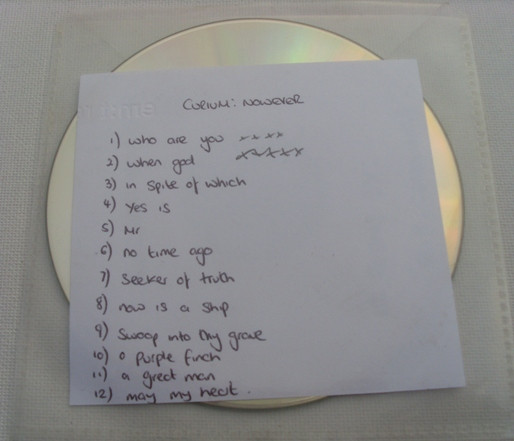 CURIUM: NOWEVER
1) who are you xxxx
2) when god xxxxx
3) in spite of which
4) Yes is
5) Mr
6) no time ago
7) Seeker of truth
8) now is a ship
9) Swoop into my grave
10) o purple finch
11) a great man
12) may my heart.